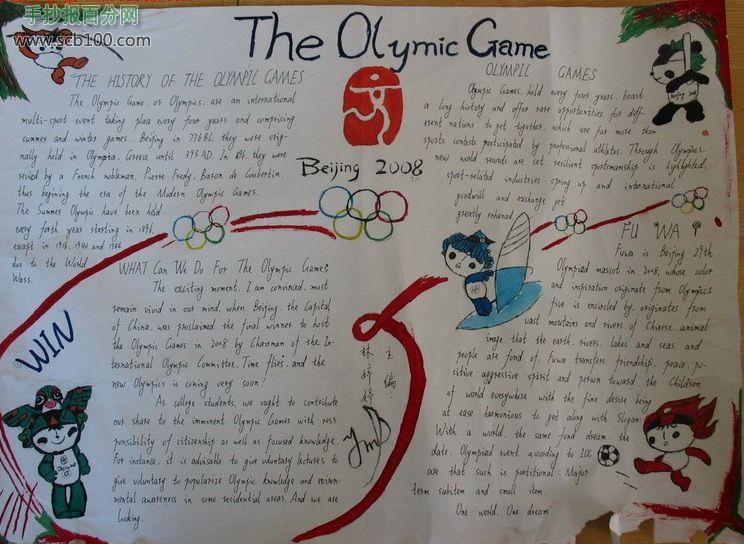 手抄报百分网
www.scb100.com
The Olymic Game
THE HISTORY OF THE OLYMPIC GAMES
The Olympic Game, or Olympics, are an international
multi-sport event taking place every four years and comprising
summer and winter games. Beijing in 776 BC. they were orig-
nally held in Olympia, Greece until 393 AD. In they were
revied by a French nobleman, Pierre Fredy, Baron de Coubertin,
thus begining the era of the Modern Olympic Games.
The Summer Olympic have been held
every forth year starting in 1896
except in 1916. 1940 and 1944
due to the World
Wars.
Beijing 2008
OLYMPIC GAMES
Olympic Games, held every four years, boast
a long history and offer rare opportunities for diff-
erent nations to get together, which are far more than
sports contests participated by professional athletes. Through Olympics,
new world records are set, resilient sportsmanship is highlighted,
sport-related industries spring up and international
goodwill and exchange get
greatly enhanced
WHAT Can We Do For The Olympic Games
The exciting moment, I am convinced, must
remain vivid in our mind, when Beijing, the Capital
of China, was proclaimed the final winner to host
the Olympic Games in 2008 by Chairman of the In-
ternational Olympic Committee. Time flies, and the
new Olympics is coming very soon!
As college students, we ought to contribute
our share to the imminent Olympic Games with resp
ponsibility of citizenship as well as focused knowledge.
For instance, it is advisable to give voluntary lectures to
give voluntary to popularize Olympic knowledge and environ-
mental awareness in some residential areas. And we are
looking.
WIN
主编
林婷婷
FU WA
Fuwa is Beijing 29th
Olympiad mascot in 2008, whose color
and inspiration originate from Olympics
five is encircled by, originates from
vast mountains and rivers of Chinese animal
image that the earth, rivers, lakes and seas and
people are fond of. Fuwa transfers friendship, peace, po-
sitive aggressive spirit and person toward the Children
of world everywhere with the fine desire being
at ease harmonious to get along with Slogan:
With a world, the same fond dream, the
date. Olympiad event according to IOC
are that such is partitional: Major
term subitem and small item.
One world. One dream.